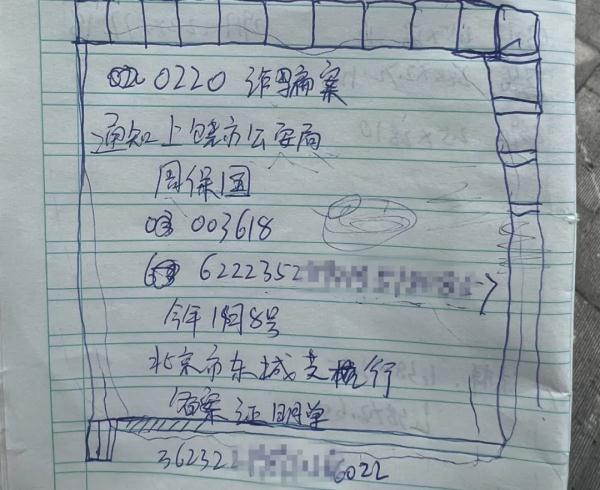 0220 诈骗案
通知上饶市公安局
周保国
003618
6222352
今年1月8号
北京市东城支行
备案证明单
362322 6022